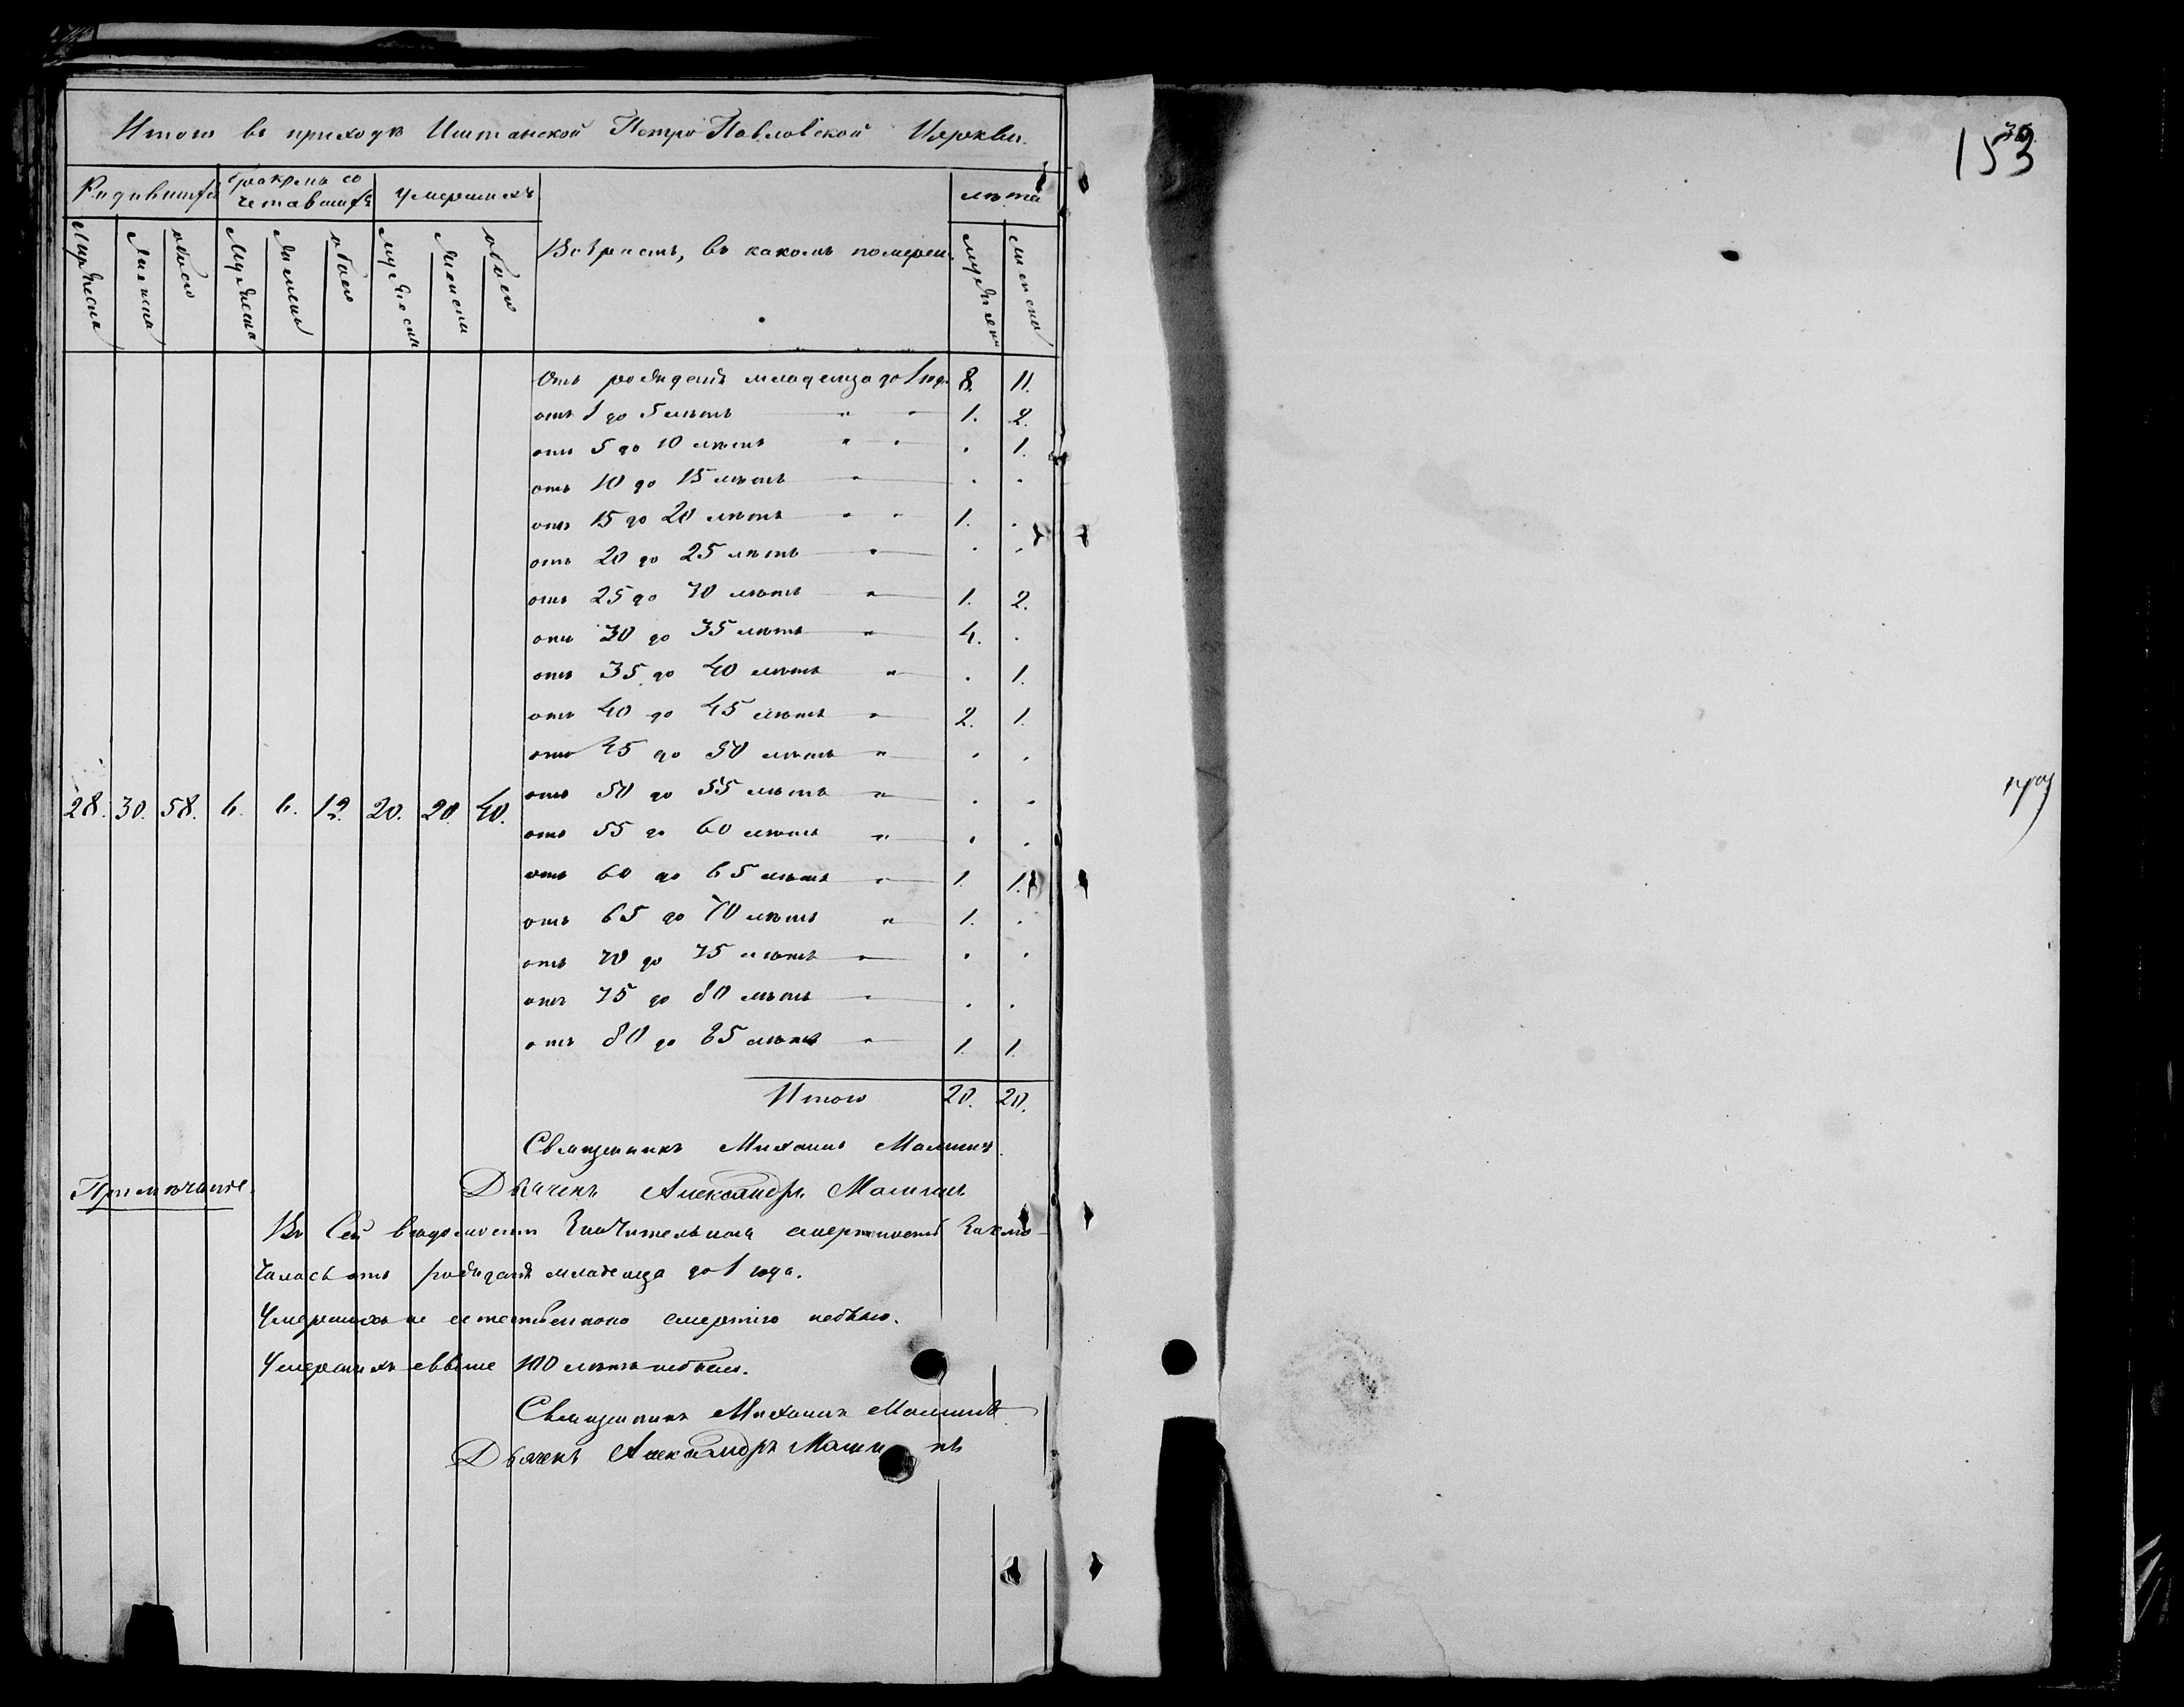 Итого въ приходѣ Иштанской Петро-Павловской Церкви.
Родившихся
бракомъ со
четавшихся
умершихъ
лѣта
Мужеска
Женска
обоего
Мужеска
Женска
обоего
мужеска
Женска
обоего
Возрастъ, въ какомъ померли.
мужеска
женска
Отъ рожденія младенца до 1 года 8. 11.
отъ 1 до 5 лѣтъ " " 1. 2.
отъ 5 до 10 лѣтъ " " . 1.
отъ 10 до 15 лѣтъ " . .
отъ 15 до 20 лѣтъ " " 1. .
отъ 20 до 25 лѣтъ " . .
отъ 25 до 30 лѣтъ " 1. 2.
отъ 30 до 35 лѣтъ " 4. .
отъ 35 до 40 лѣтъ " . 1.
отъ 40 до 45 лѣтъ " 2. 1.
отъ 45 до 50 лѣтъ " . .
28. 30. 58. 6. 6. 12. 20. 20. 40.
отъ 50 до 55 лѣтъ " . .
отъ 55 до 60 лѣтъ " . .
отъ 60 до 65 лѣтъ " 1. 1.
отъ 65 до 70 лѣтъ " 1. .
отъ 70 до 75 лѣтъ " . .
отъ 75 до 80 лѣтъ " . .
отъ 80 до 85 лѣтъ " 1. 1.
Итого 20. 20.
Священникъ Михаилъ
Дьячекъ Александръ
Примѣчаніе.
Въ Сей вѣдомости Значительная смертность Заклю-
чалась отъ рожденія младенца до 1 года.
Умершихъ не естественною смертію небыло.
Умершихъ свыше 100 лѣтъ небыло.
Священникъ Михаилъ
Дьячекъ Александръ
153